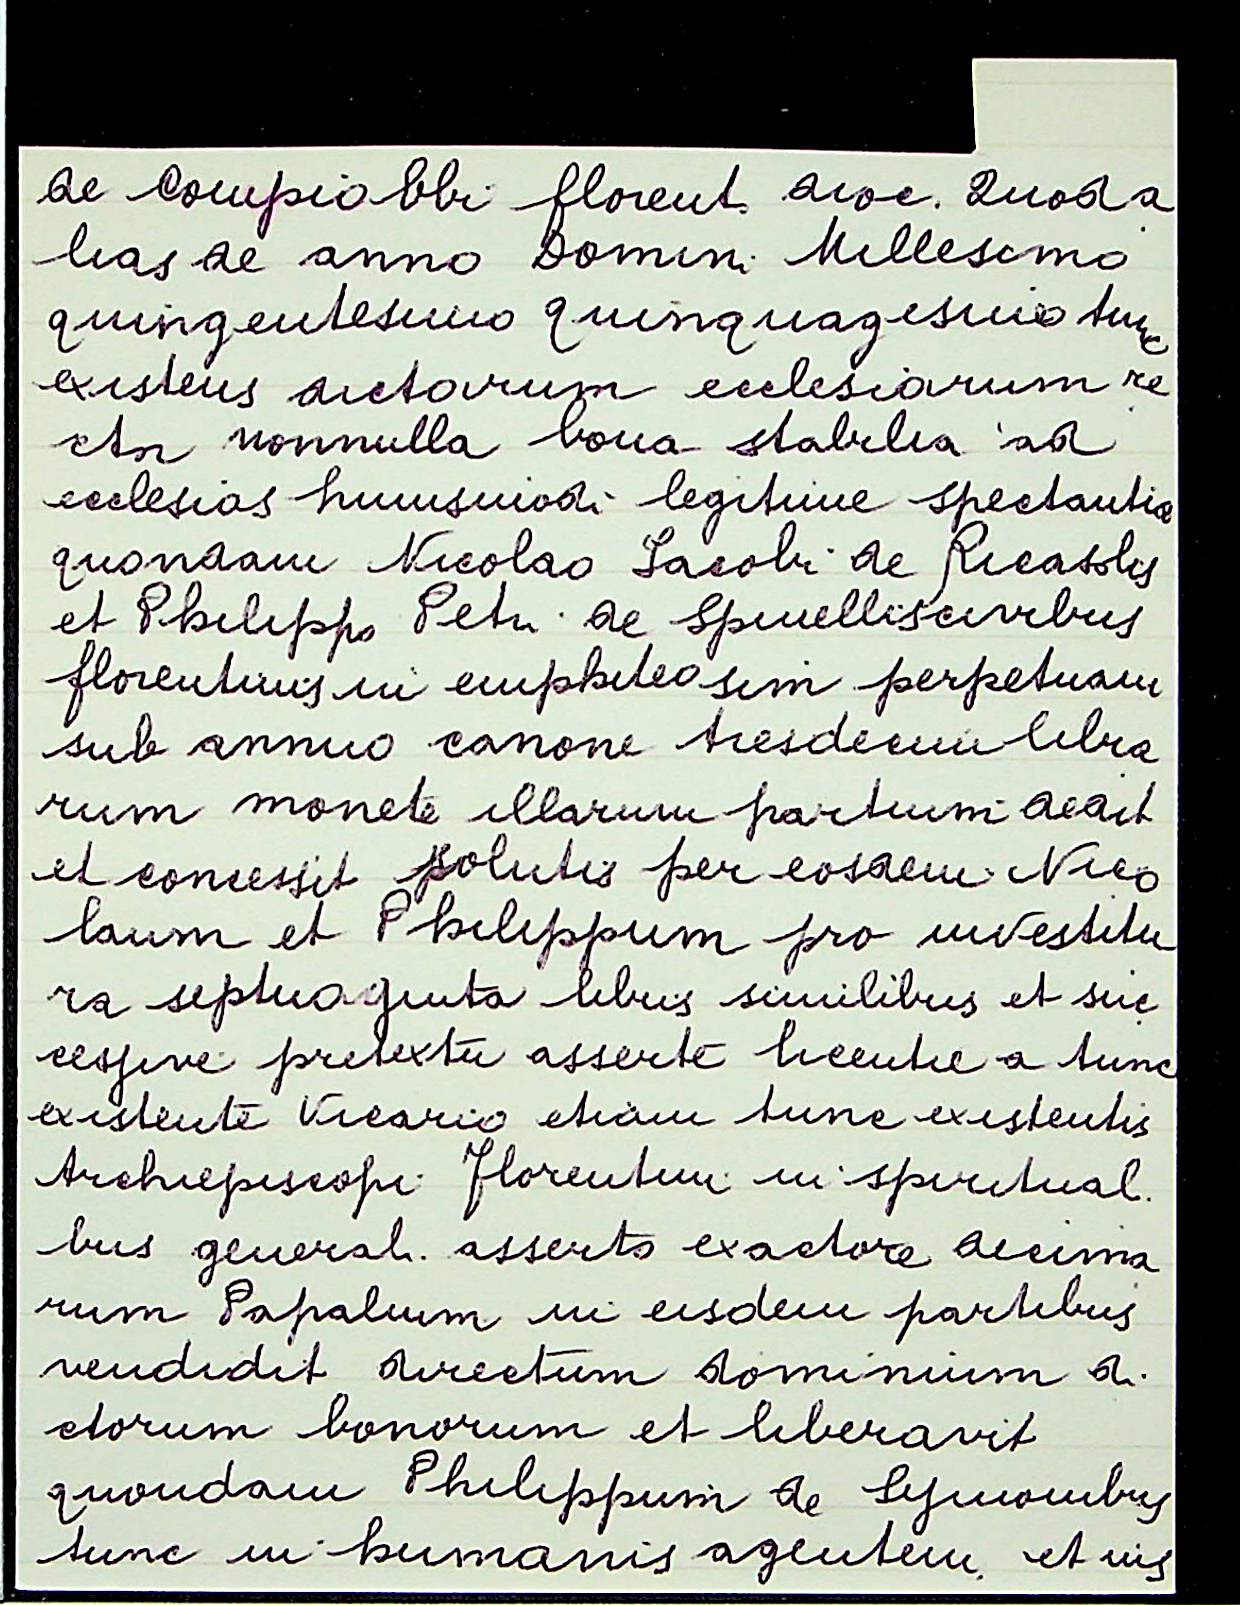 de Compiobbi florent. dioc. Quod a
lias de anno Domini Millesimo
quingentesimo quinquagesimo tunc
existens dictarum ecclesiarum re
ctor nonnulla bona stabilia ad
ecclesias huiusmodi legitime spectantia
quondam Nicolao Jacobi de Ricasolis
et Philippo Petri de Spinellis civibus
florentinis in emphiteosim perpetuam
sub annuo canone tresdecim libra
rum monete illarum partium dedit
et concessit solutis per eosdem Nico
laum et Philippum pro investitu
ra septuaginta libris similibus et suc
cessive pretextu asserte licentie a tunc
existente Vicario etiam tunc existentis
Archiepiscopi Florentini in spiritual.
bus generali asserto exactore decima
rum Papalium in eisdem partibus
vendidit directum dominium di
ctorum bonorum et liberavit
quondam Philippum de
tunc in humanis agentem et